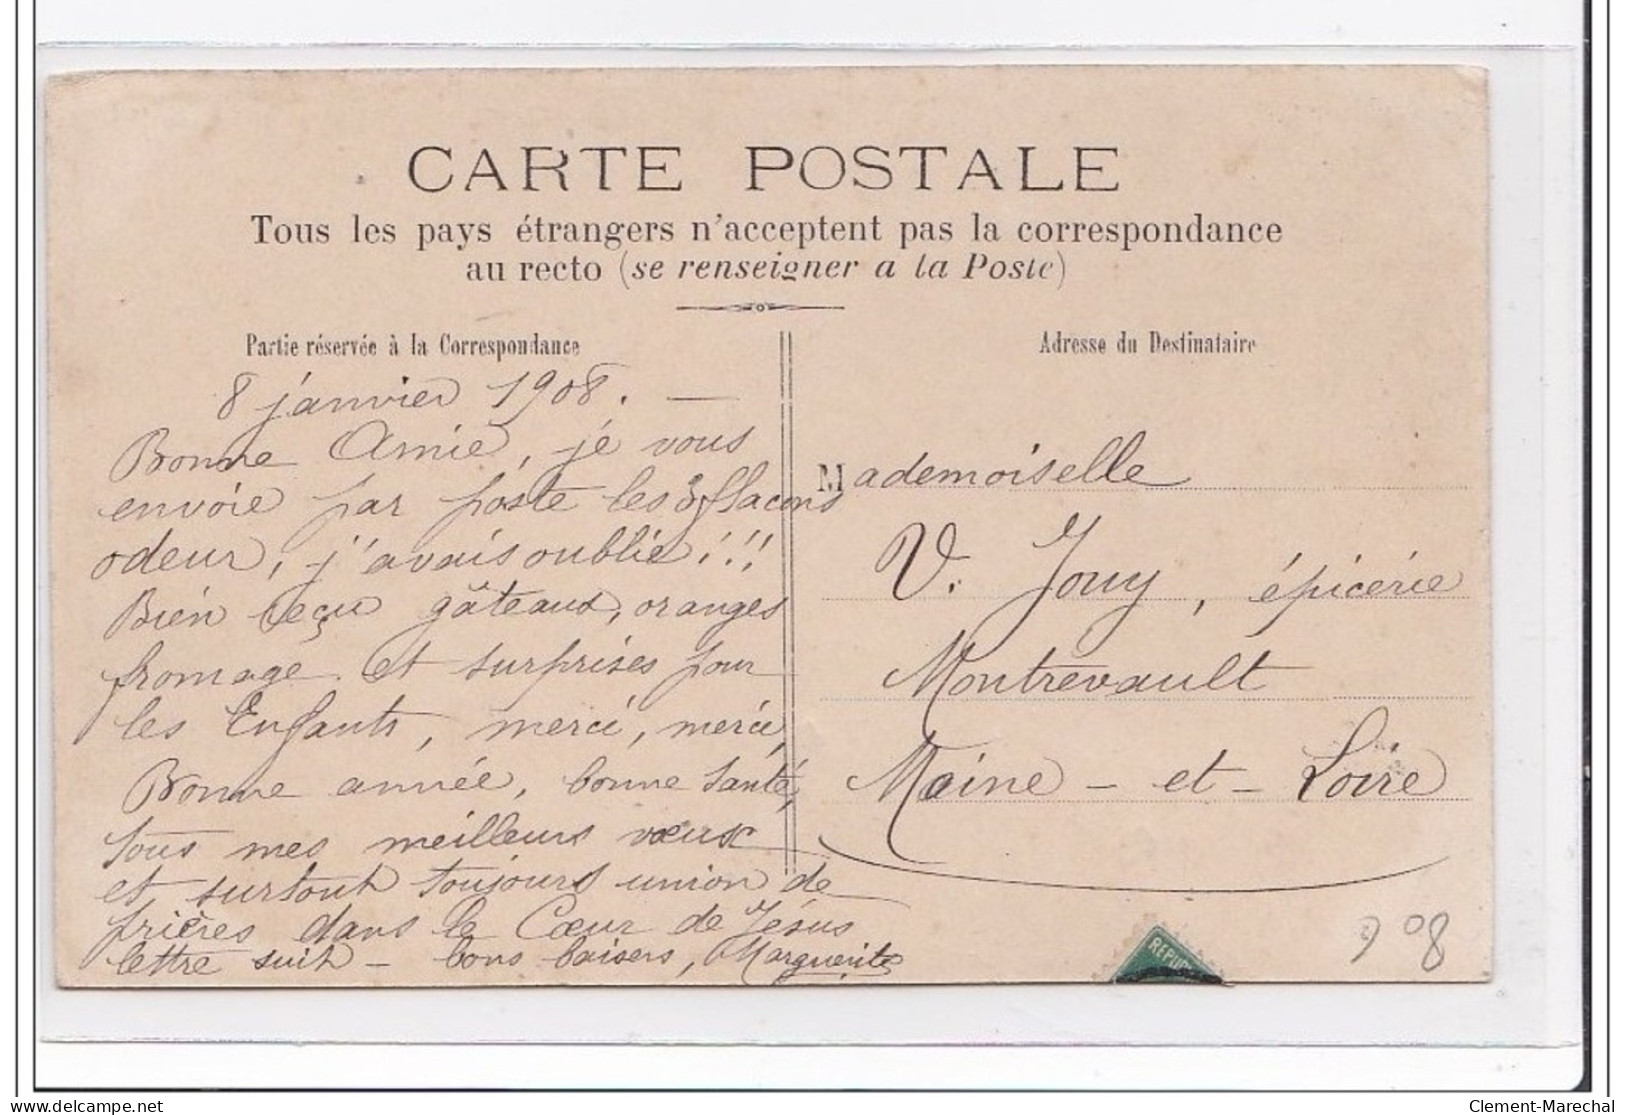 CARTE POSTALE
Tous les pays étrangers n'acceptent pas la correspondance
au recto (se renseigner a la Poste)
Partie réservée à la Correspondance
8 janvier 1908. —
Bonne Amie, je vous
envoie par poste les 3 flacons
odeur, j'avais oublié!!!
Bien reçu gâteaux, oranges
fromage et surprises pour
les Enfants, merci, merci,
Bonne année, bonne santé,
tous mes meilleurs vœux
et surtout toujours union de
prières dans le Cœur de Jésus
lettre suit — bons baisers, Marguerite
Adresse du Destinataire
Mademoiselle
V. Jouy, épicerie
Montrevault
Maine - et - Loire
REPU
908
delcampe.net
Clement-Marechal